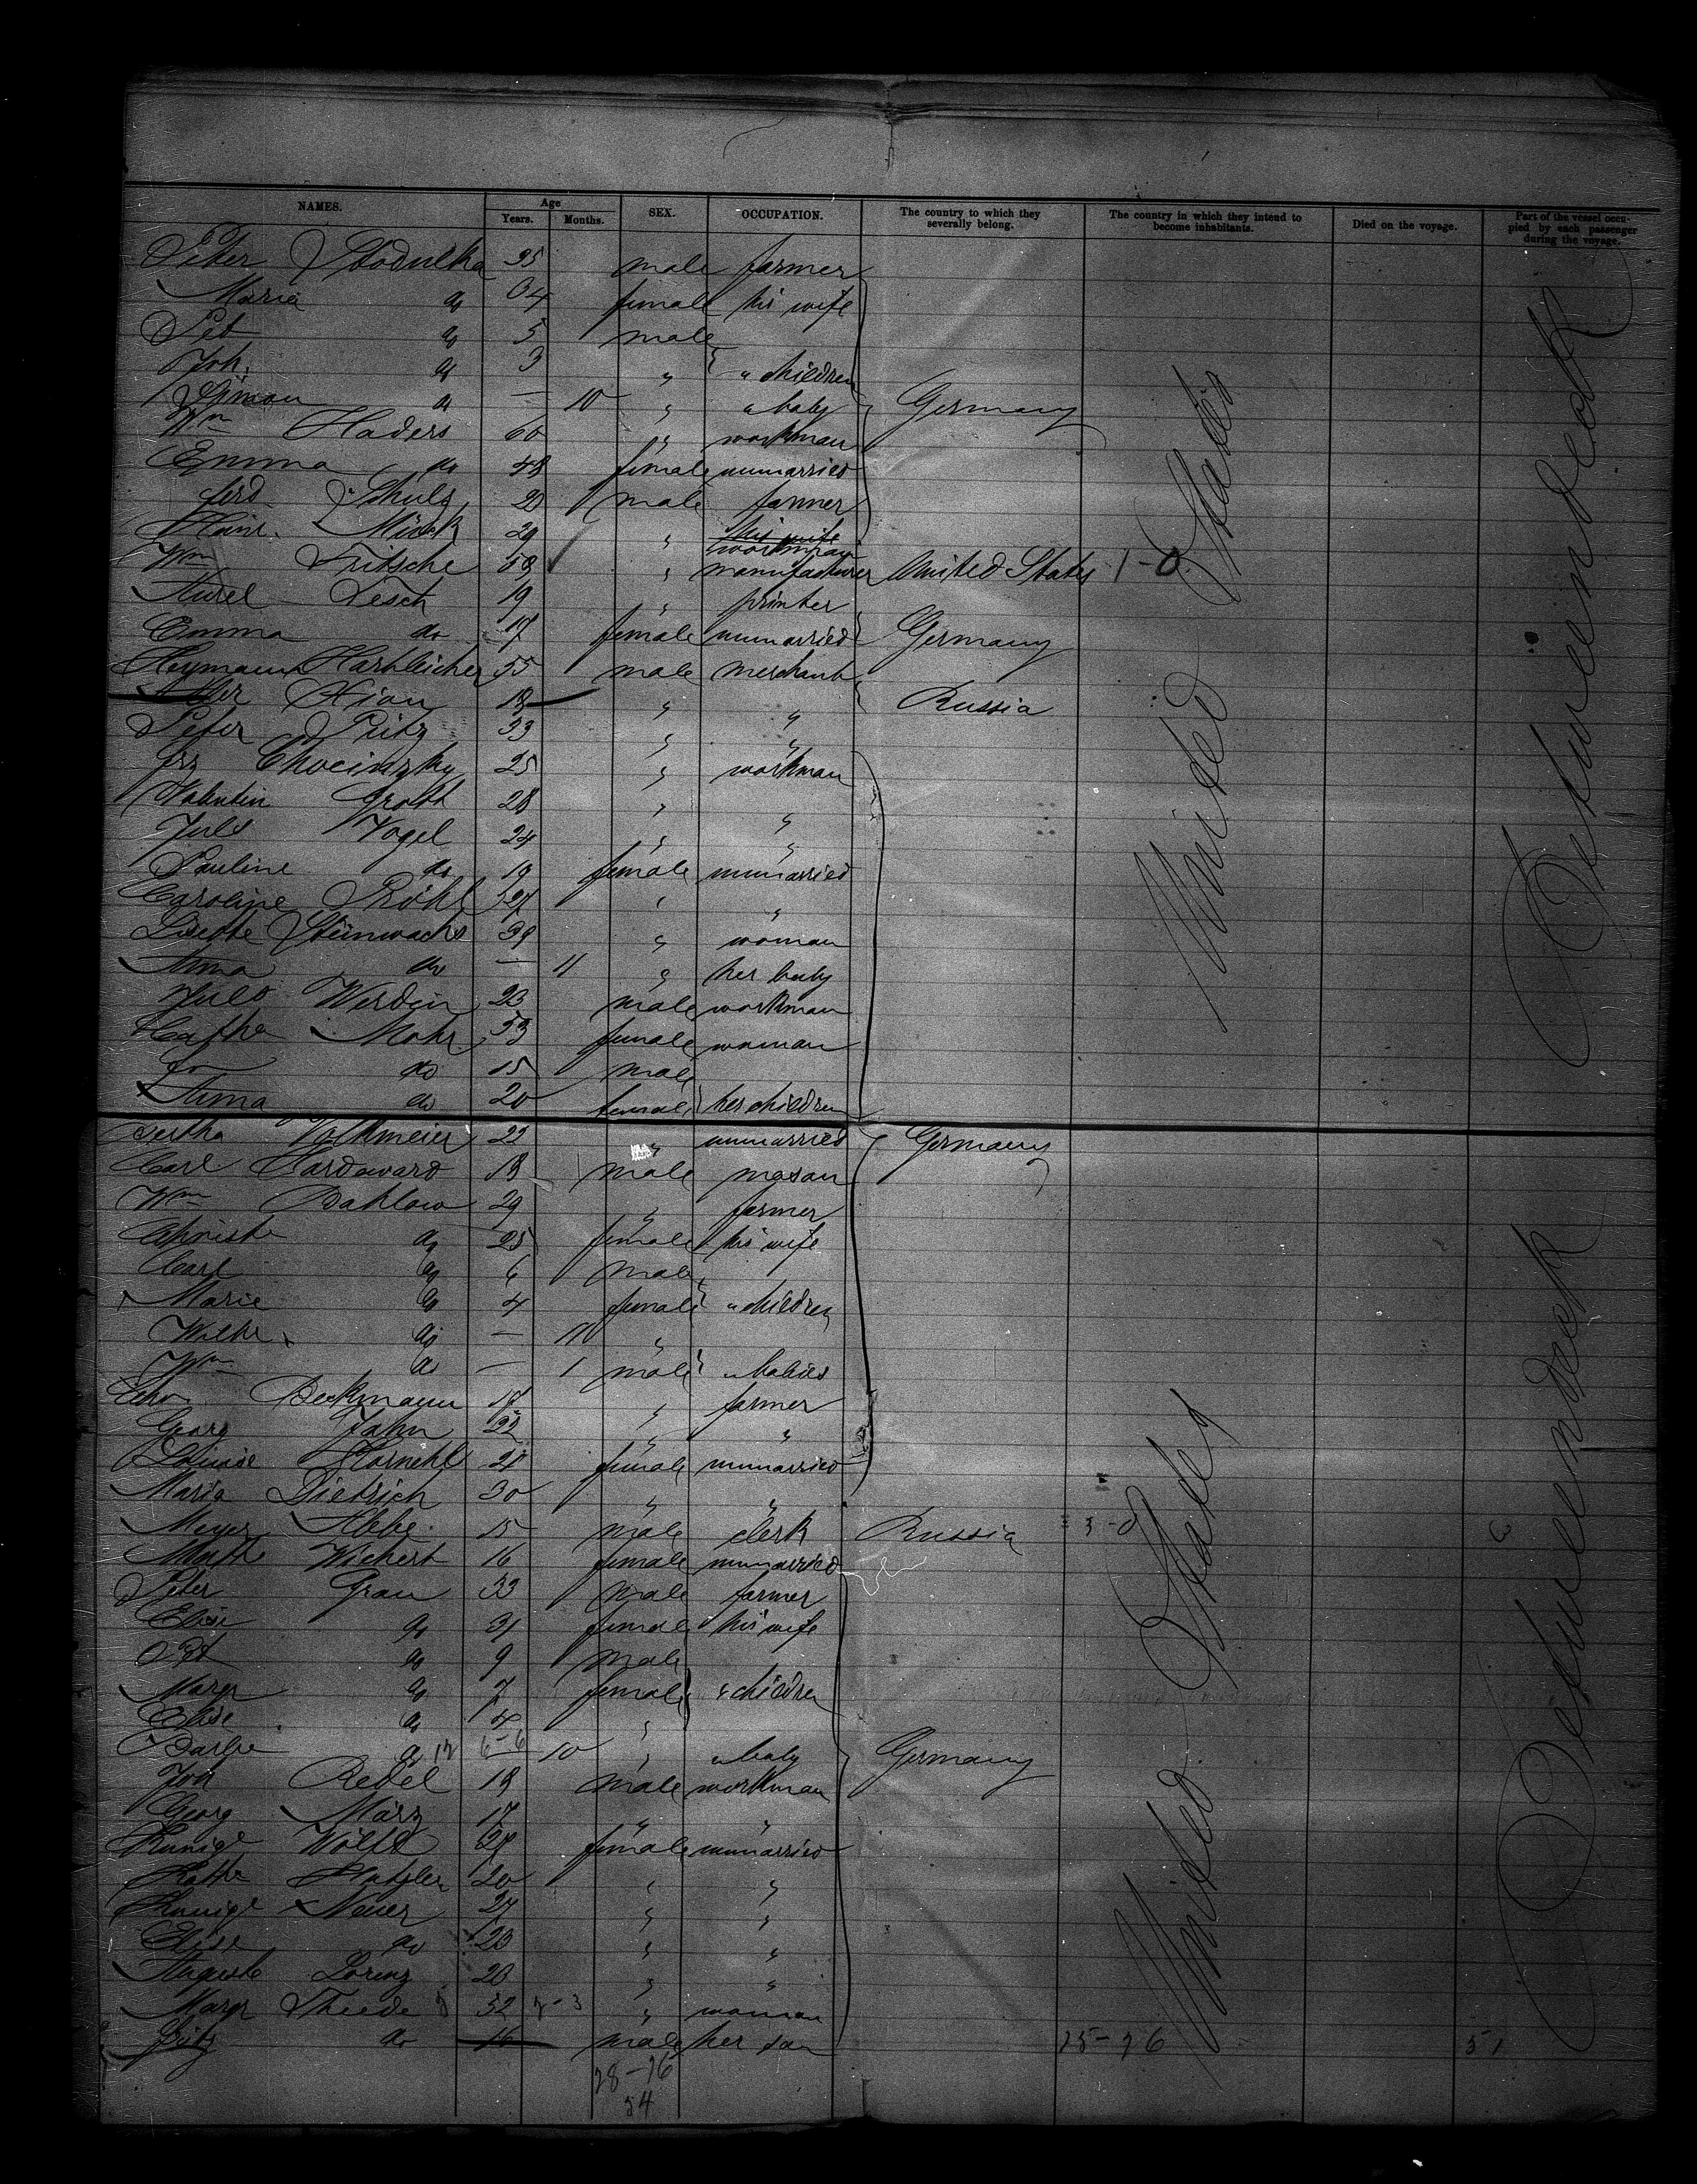 NAMES. Age Years. Months. SEX. OCCUPATION. The country to which they severally belong. The country in which they intend to become inhabitants. Died on the voyage. Part of the vessel occupied by each passenger during the voyage.
Peter Stodulka 35 male farmer
Maria do 34 female his wife
Pet do 5 male
Joh. do 3 " " children
Simon do — 10 " " baby Germany
Wm Haders 60 " workman
Emma do 48 female unmarried
Ferd Schulz 28 male farmer
Heinr. Mück 29 " his wife workman
Wm Fritsche 58 " manufacturer United States 1-0
Aurel Lesch 19 " printer
Emma do 17 female unmarried Germany
Heymann 55 male merchant
18 " " Russia
Peter 33 " "
25 " workman
Valentin Groth 28 " "
Juls Vogel 24 " "
Pauline do 19 female unmarried
Caroline Pröhl 27 " "
Lisette Steinwachs 39 " woman
Anna do — 11 " her baby
Juls Werdin 23 male workman
Cathe Mohr 53 female woman
do 15 male
Anna do 20 female her children
United States
Betweendeck
Bertha Volkmeier 22 " unmarried Germany
Carl 18 male mason
Wm Dahlow 29 " farmer
Christe do 25 female his wife
Carl do 6 male
Marie do 4 female " children
Wilhe. do — 11 "
Wm do — 1 male " babies
Beckmann 17 " farmer
Georg Jahn 22 " "
Louise 21 female unmarried
Maria Dietrich 30 " "
Meyer 15 male clerk Russia 3-0
Wichert 16 female unmarried
Peter Grau 33 male farmer
Elise do 31 female his wife
Pet do 9 male
Margr do 7 female " children
Elise do 4 "
do 12 6-6 10 " " baby Germany
Joh Redel 18 male workman
Georg März 17 " "
Kunige Wölfel 27 female unmarried
Kathe 20 " "
Kunige Neuer 27 " "
Elise do 23 " "
Auguste Lorenz 23 " "
Margr Theede 52 " woman
Fritz do 16 male her son
United States
Betweendeck
28-26
54
25-26
51